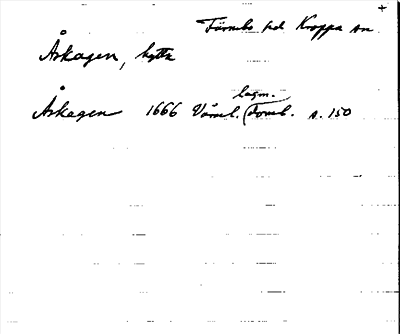 +
Färnebo hd Kroppa sn
Åskagen, hytta
Åskagen 1666 Värml. (lagm. Domb. s. 150